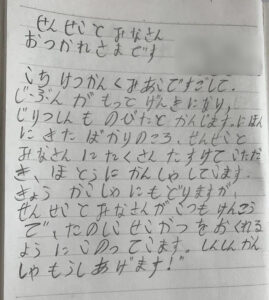 せんせいと みなさん
おつかれさまです
こち けつかんくみあいですごして、
じぶんが もっと げんきになり、
じりつしんも のびたと かんじます。にほん
に きた ばかりのころ、せんせいと
みなさん に たくさん たすけていただ
き、ほ とうに かんしゃしています。
きょう かいしゃ にもどりますが、
せんせいと みなさんが いつも けんこう
で、たのしい せいかつを おくれる
ように いのっています。しんしん かん
しゃ もうしあげます！